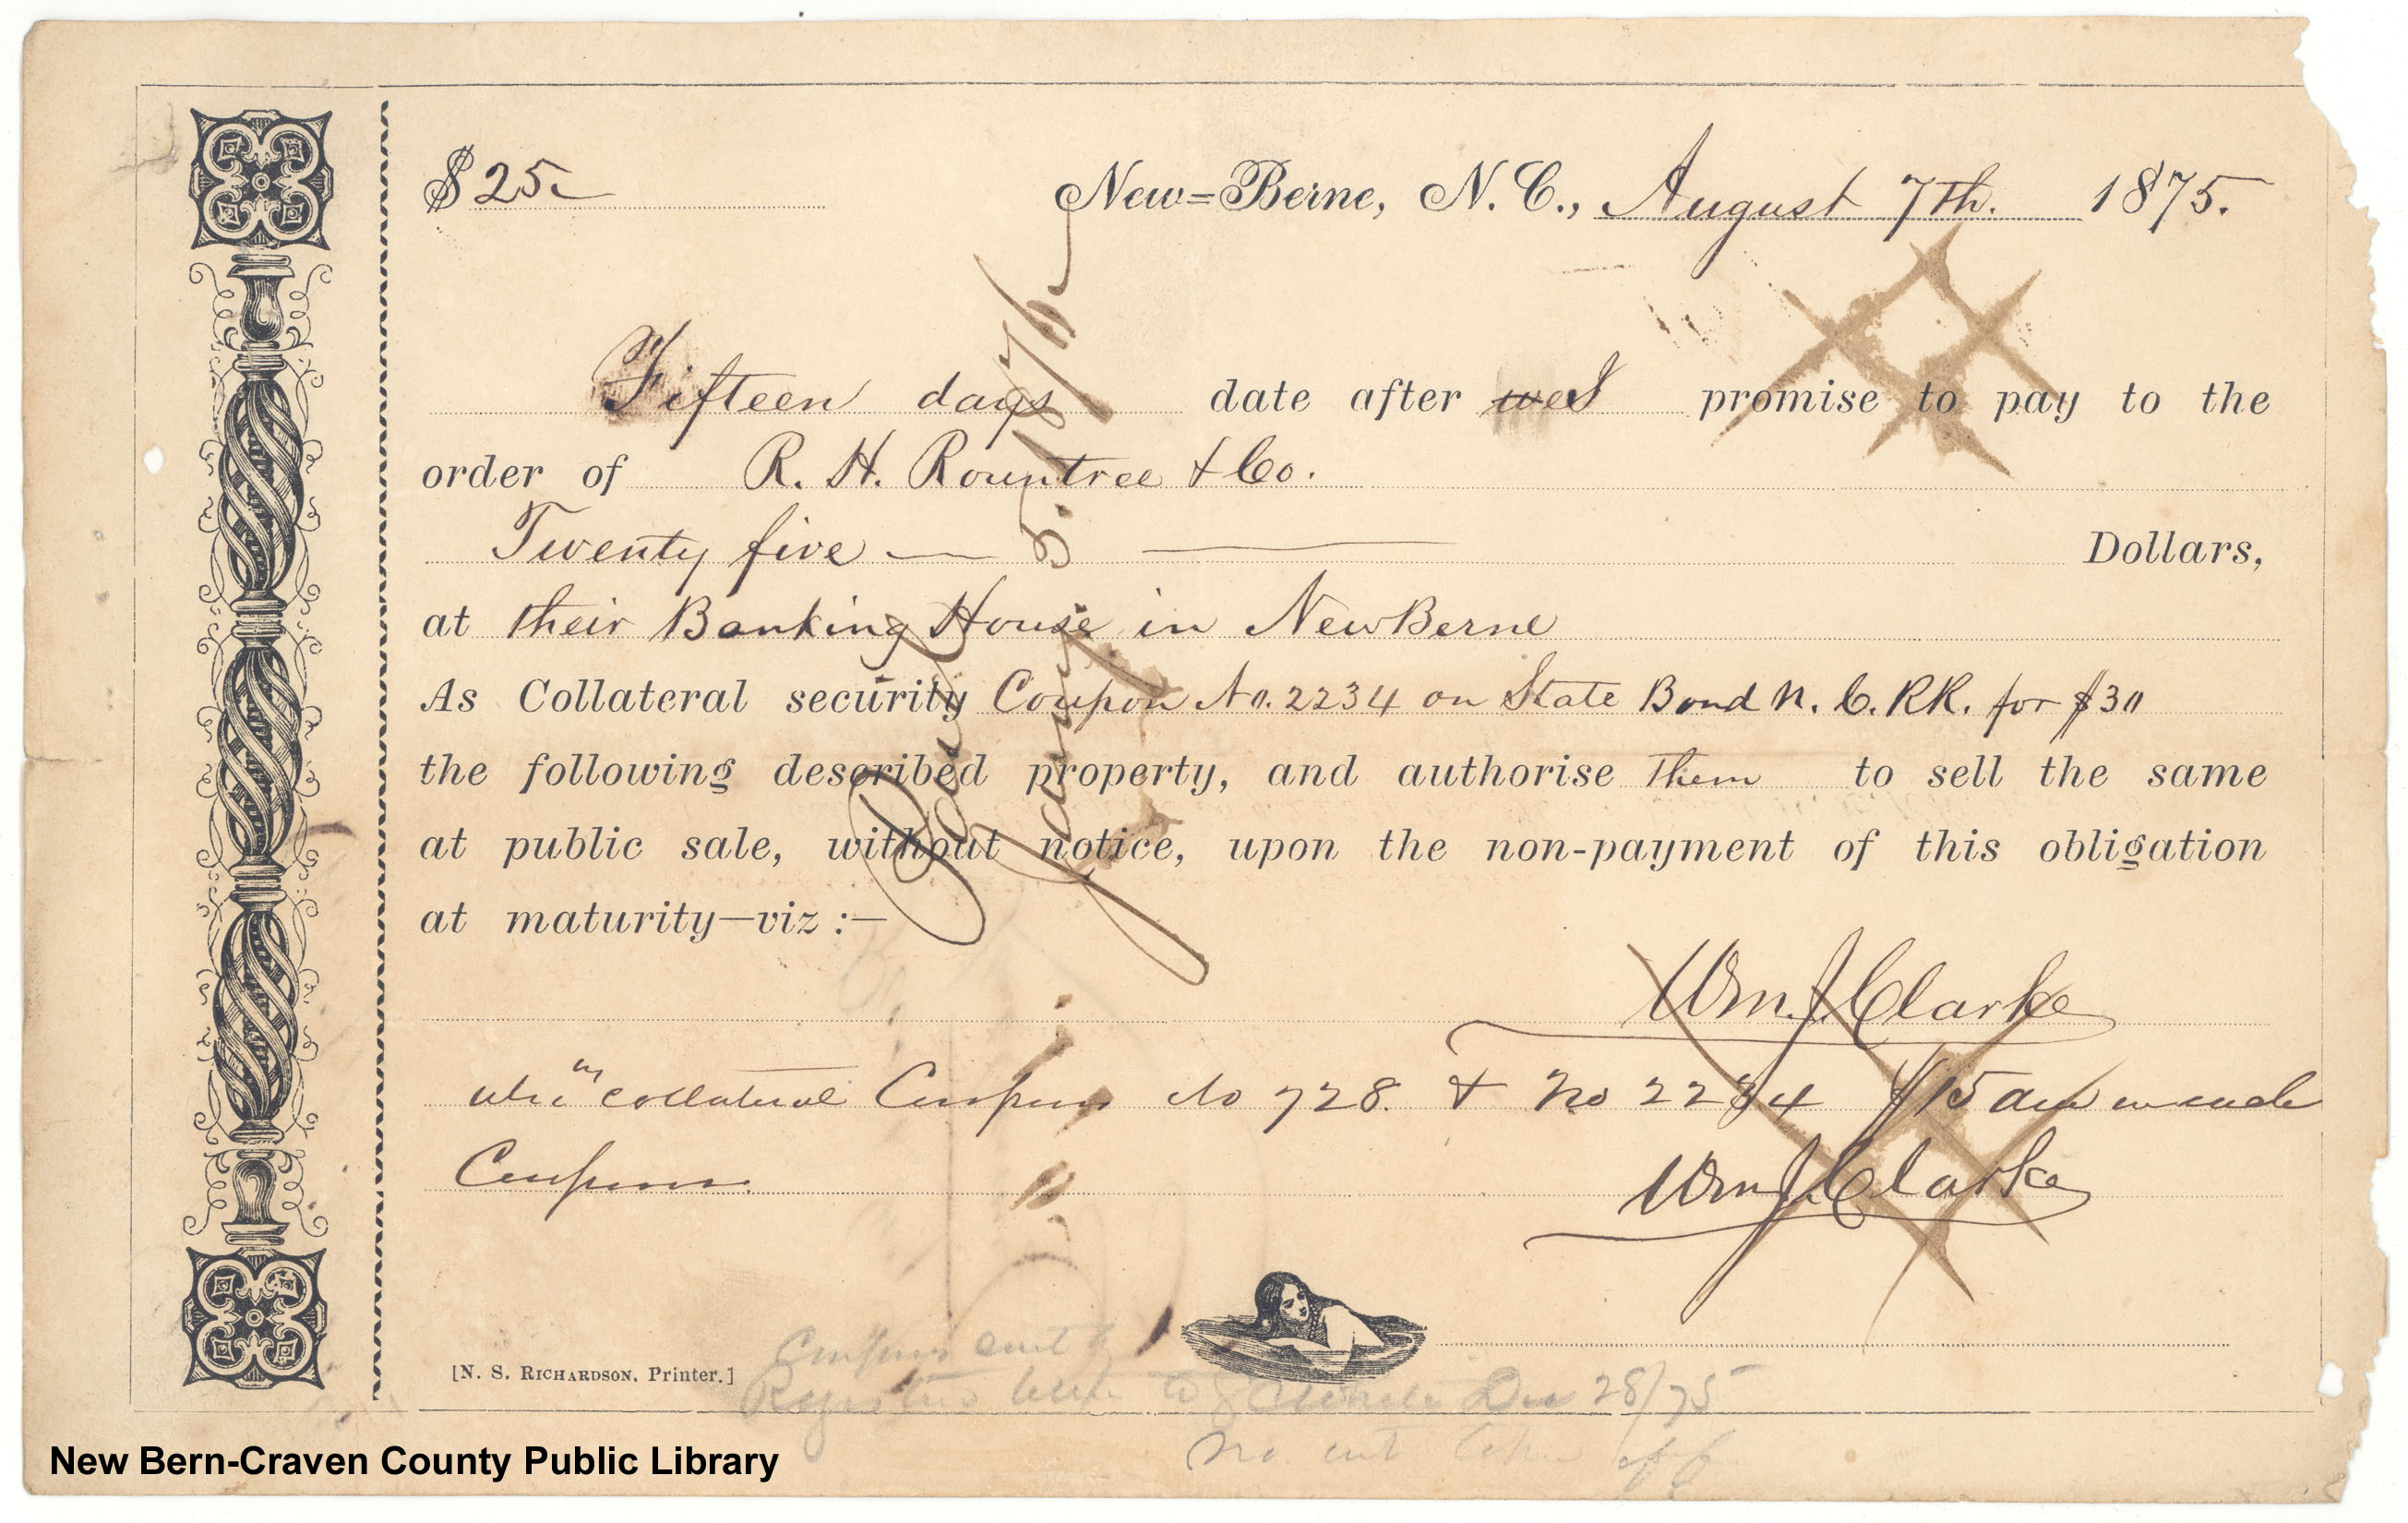 $ 25 New=Berne, N. C., August 7th. 1875.
Fifteen days date after we I promise to pay to the
order of R. H. Rountree & Co.
Twenty five Dollars,
at their Banking House in NewBerne
As Collateral security Coupon No. 2234 on State Bond N. C. RR. for $30
the following described property, and authorise them to sell the same
at public sale, without notice, upon the non-payment of this obligation
at maturity—viz :—
Paid
Jany 5. 1876
Wm. J. Clarke
collateral Coupons No 728. & No 2234 $15 each
Coupons.
Wm. J. Clarke
[N. S. RICHARDSON, Printer.]
Coupons cut
28/75
No cut off
New Bern-Craven County Public Library